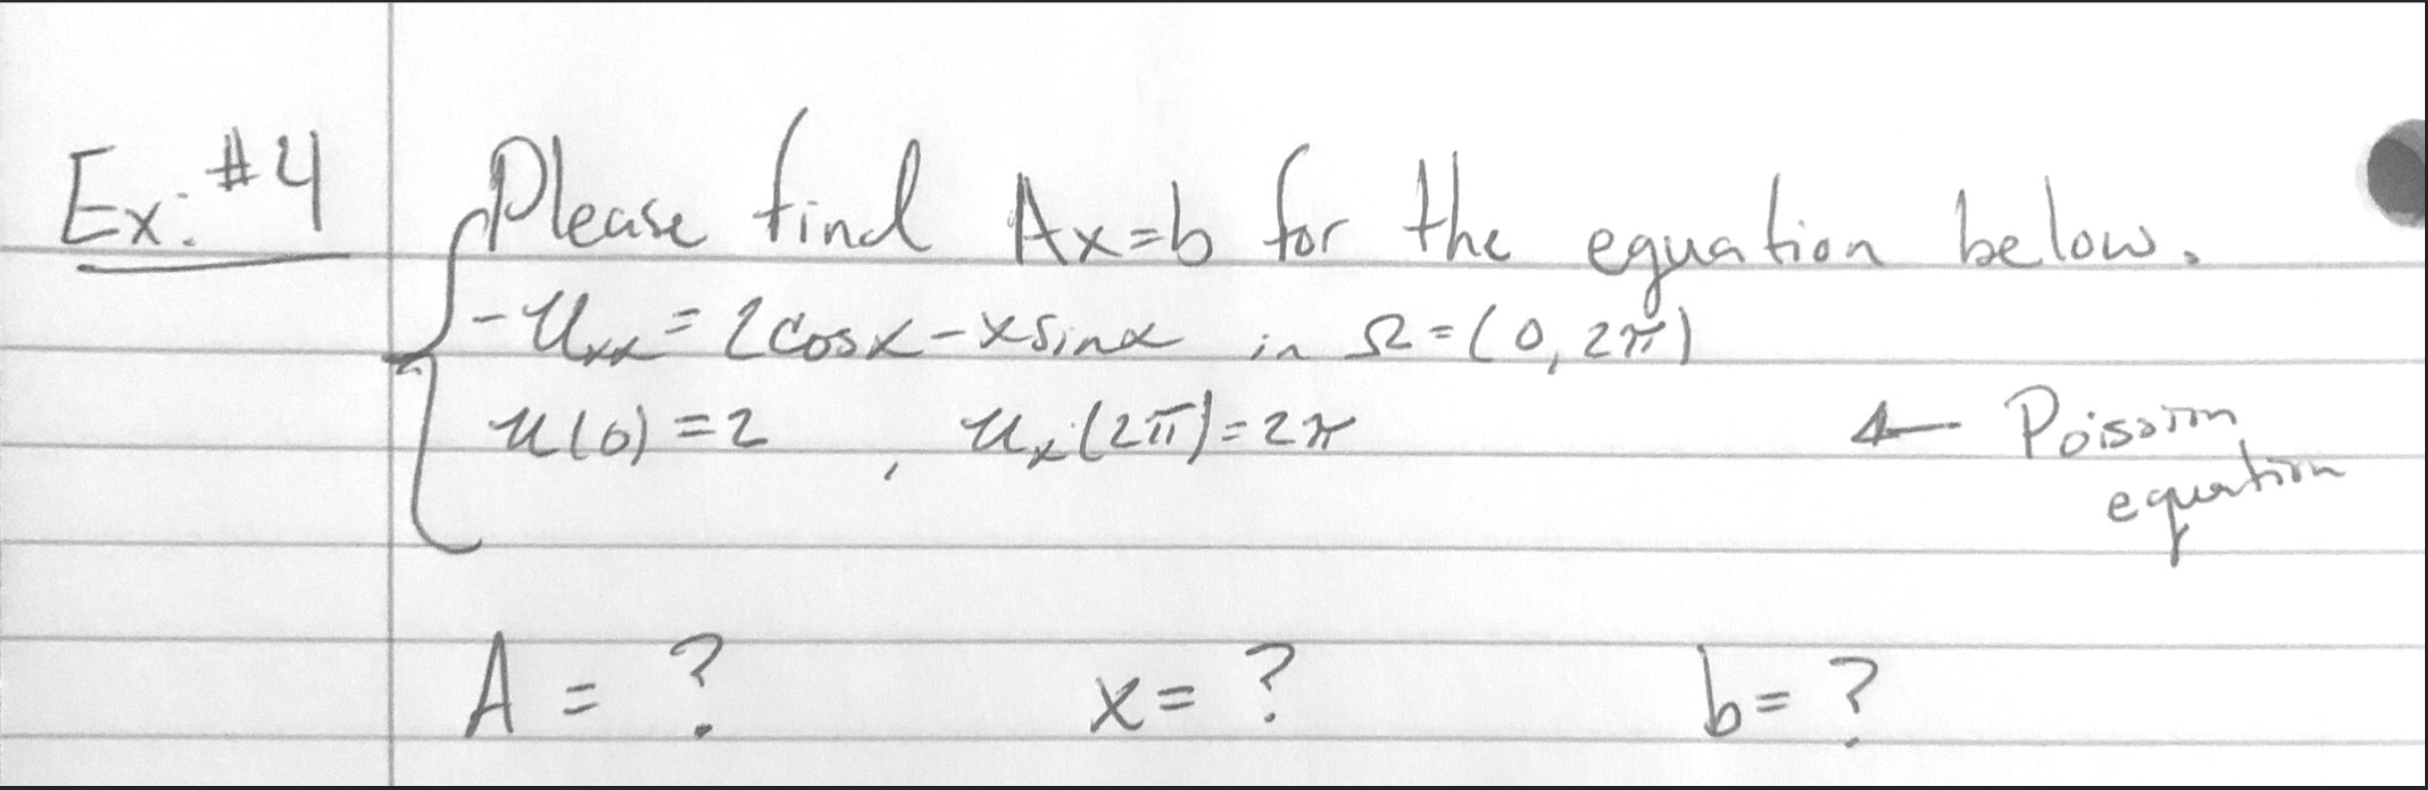 Ex: #4 Please find Ax=b for the equation below.
-u_xx = 2cosx - xsinx in Ω = (0, 2π)
u(0) = 2 , u_x(2π) = 2π ← Poisson equation
A = ? x = ? b = ?